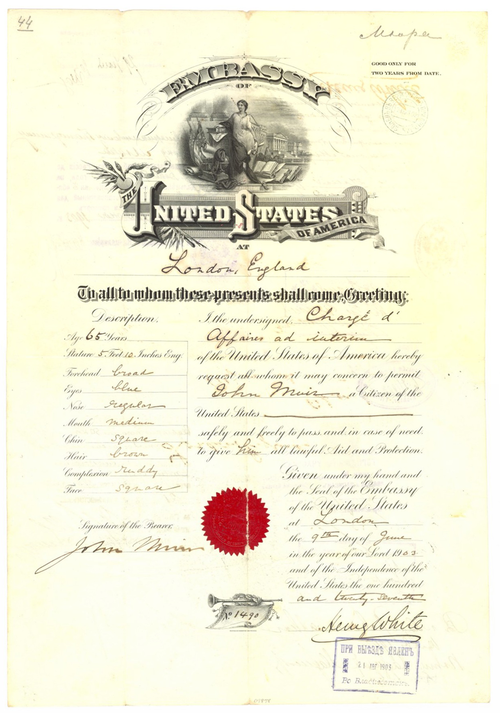 44
GOOD ONLY FOR
TWO YEARS FROM DATE.
EMBASSY
OF
THE
UNITED STATES
OF AMERICA
AT
London, England
To all to whom these presents shall come, Greeting:
Description.
Age 65 Years
Stature 5 Feet 10 Inches Eng
Forehead broad
Eyes blue
Nose regular
Mouth medium
Chin square
Hair brown
Complexion ruddy
Face square
Signature of the Bearer,
John Muir
I the undersigned, Chargé d'
Affaires ad interim
of the United States of America hereby
request all whom it may concern to permit
John Muir a Citizen of the
United States
safely and freely to pass and in case of need
to give him all lawful Aid and Protection.
Given under my hand and
the Seal of the Embassy
of the United States
at London
the 9th day of June
in the year of our Lord 1903
and of the Independence of the
United States the one hundred
and twenty-seventh
Henry White
No 1490
ПРИ ВЫѢЗДѢ ЯВЛЕНЪ